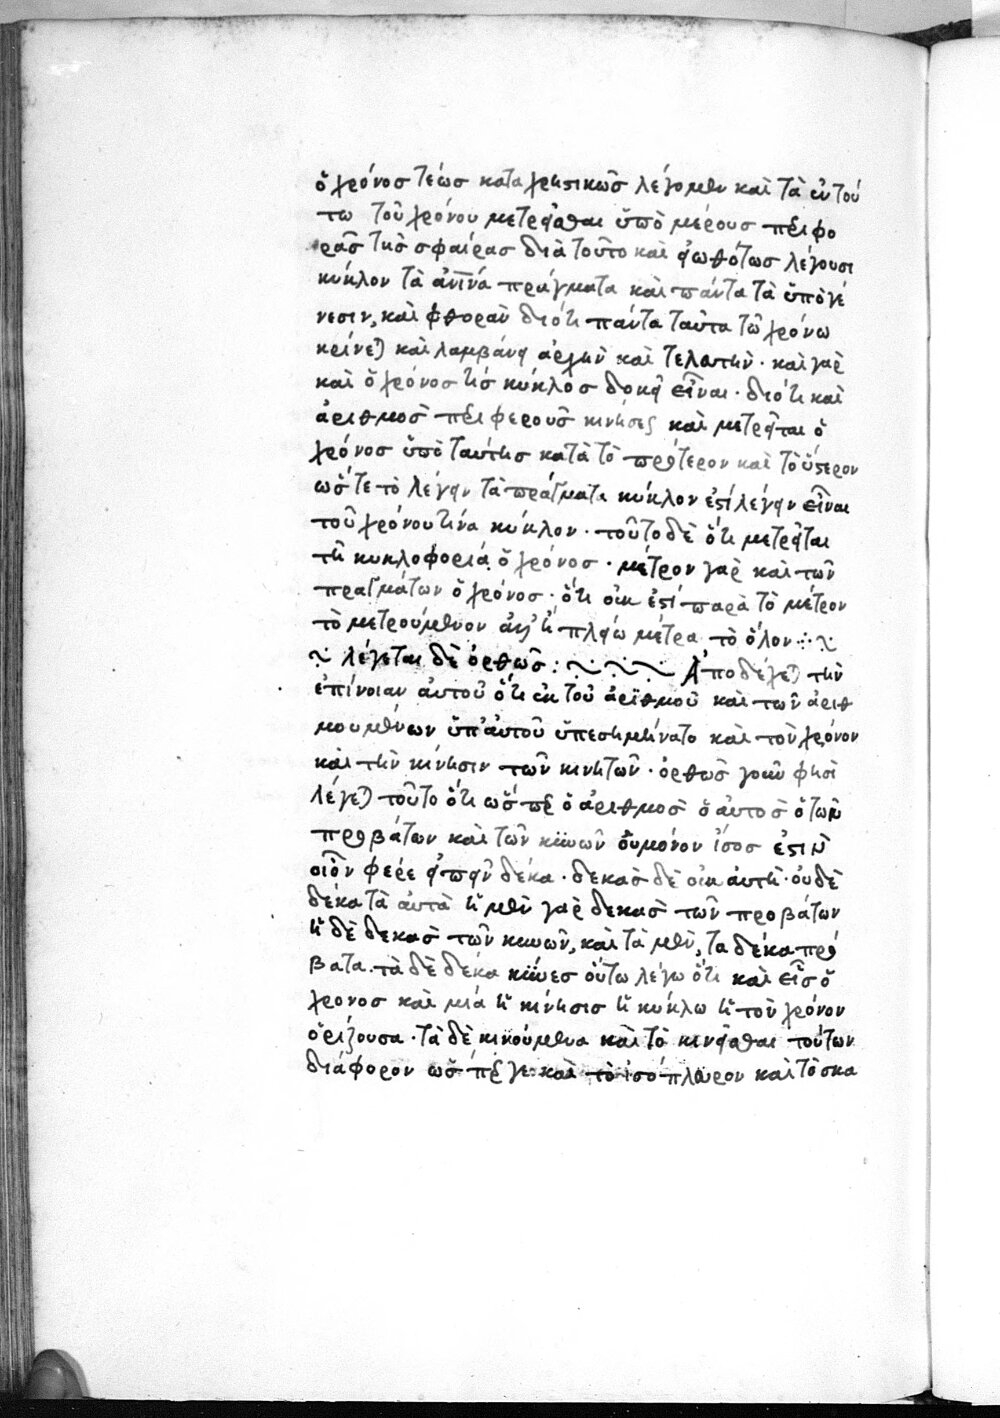 ὁ χρόνοσ τέωσ καταχρηστικῶσ λέγομεν καὶ τὰ ἐν τού
τω τοῦ χρόνου μετρεῖσθαι ὑπὸ μέρουσ περιφο
ρᾶσ τῆσ σφαίρασ διὰ τοῦτο καὶ εἰωθότωσ λέγουσι
κύκλον τὰ ἀνῖνά πράγματα καὶ πάντα τὰ ὑπὸ γέ
νεσιν, καὶ φθορὰν διότι πάντα ταῦτα τῶ χρόνω
κρίνεται καὶ λαμβάνει ἀρχὴν καὶ τελευτὴν · καὶ γὰρ
καὶ ὁ χρόνοσ τίσ κύκλοσ δοκεῖ εἶναι · διότι καὶ
ἀριθμὸσ περιφεροῦσ κινήσεσ καὶ μετρεῖται ὁ
χρόνοσ ὑπὸ ταύτησ κατὰ τὸ πρότερον καὶ τὸ ὕστερον
ὥστε τὸ λέγειν τὰ πράγματα κύκλον ἐστί λέγειν εἶναι
τοῦ χρόνου τινά κύκλον · τοῦτο δὲ ὅτι μετρεῖται
τῆ κυκλοφορία ὁ χρόνοσ · μέτρον γὰρ καὶ τῶν
πραγμάτων ὁ χρόνοσ · ὅτι οὐκ ἐστί παρὰ τὸ μέτρον
τὸ μετρούμενον ἀλλ' ἢ πλείω μέτρα τὸ ὅλον
λέγεται δὲ ὀρθῶσ : Ἀποδέχεται τὴν
ἐπίνοιαν ἀυτοῦ ὅτι ἐκ τοῦ ἀριθμοῦ καὶ τῶν ἀριθ
μουμένων ὑπ' ἀυτοῦ ὑπεσημήνατο καὶ τὸν χρόνον
καὶ τὴν κίνησιν τῶν κινητῶν · ὀρθῶσ γοῦν φησὶ
λέγεται τοῦτο ὅτι ὥσπερ ὁ ἀριθμὸσ ὁ ἀυτὸσ ὁ τῶν
προβάτων καὶ τῶν κϋνῶν ὁυμόνον ἴσοσ ἐστιν
οἷον φέρε εἰπεῖν δέκα · δεκὰσ δὲ οὐκ ἀυτὴ · ὀυδὲ
δέκα τὰ ἀυτὰ ἡ μὲν γὰρ δεκὰσ τῶν προβάτων
ἡ δὲ δεκὰσ τῶν κυνῶν, καὶ τὰ μὲν, τα δέκα πρό
βατα · τὰ δὲ δέκα κϋνεσ ὅυτω λέγω ὅτι καὶ εἷσ ὁ
χρονοσ καὶ μιά ἡ κίνησισ ἡ κύκλω ἡ τὸν χρόνον
ὁρίζουσα · τὰ δὲ κινούμενα καὶ τὸ κινεῖσθαι τούτων
διάφορον ὥσπερ γε καὶ τὸ ἰσόπλευρον καὶ τὸ σκα